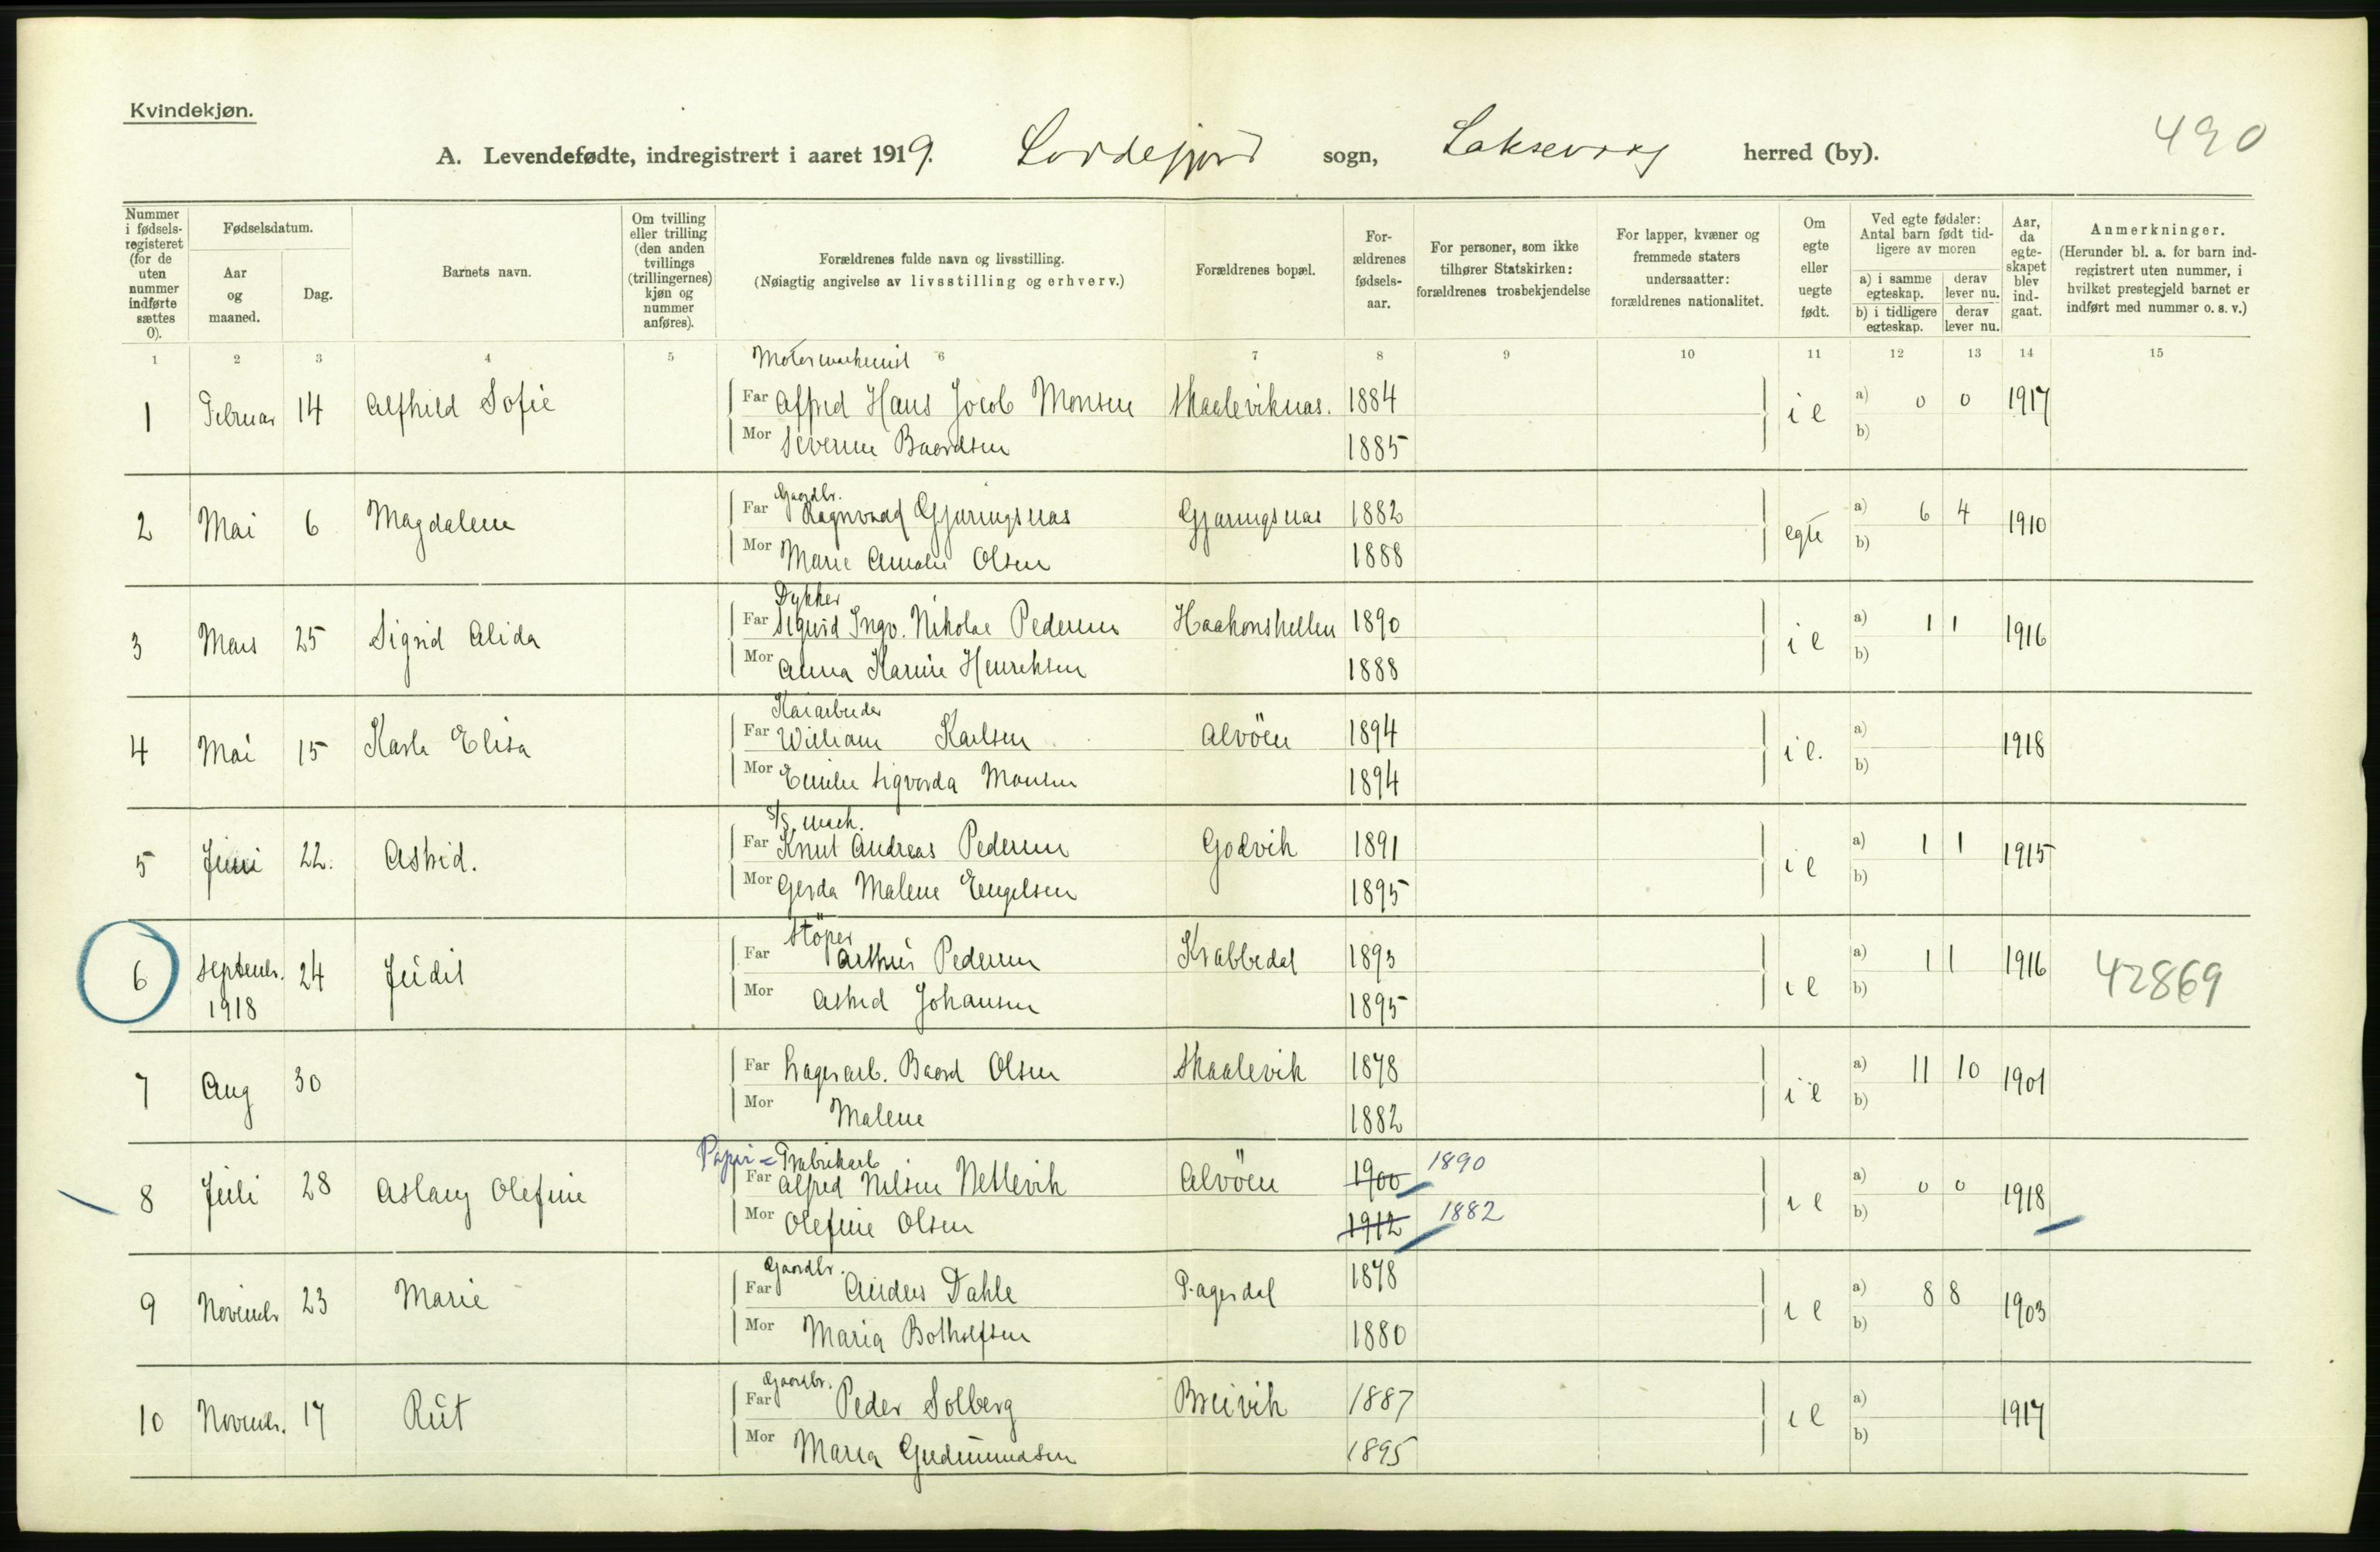 Kvindekjøn.
490
A. Levendefødte, indregistrert i aaret 1919. sogn, Laksevaag herred (by).
Nummer i fødsels-registeret (for de uten nummer indførte sættes 0).
Fødselsdatum.
Aar og maaned.
Dag.
Barnets navn.
Om tvilling eller trilling (den anden tvillings (trillingernes) kjøn og nummer anføres).
Forældrenes fulde navn og livsstilling.
(Nøiagtig angivelse av livsstilling og erhverv.)
Forældrenes bopæl.
For-ældrenes fødsels-aar.
For personer, som ikke tilhører Statskirken: forældrenes trosbekjendelse
For lapper, kvæner og fremmede staters undersaatter: forældrenes nationalitet.
Om egte eller uegte født.
Ved egte fødsler: Antal barn født tid-ligere av moren
a) i samme egteskap. derav lever nu.
b) i tidligere egteskap. derav lever nu.
Aar, da egte-skapet blev ind-gaat.
Anmerkninger.
(Herunder bl. a. for barn ind-registrert uten nummer, i hvilket prestegjeld barnet er indført med nummer o. s. v.)
1 2 3 4 5 6 7 8 9 10 11 12 13 14 15
Motormaskinist
1 Februar 14 Alfhild Sofie Far Alfred Hans Jacob Monsen Skaaleviknæs. 1884 i e a) 0 0 1917
Mor Severine Baardsen 1885 b)
Gaardbr.
2 Mai 6 Magdalene Far Ragnvald Gjæringsnæs Gjæringsnæs 1882 egte a) 6 4 1910
Mor Marie Amalie Olsen 1888 b)
Dykker
3 Mars 25 Sigrid Alida Far Sigurd Ingv. Nikolai Pedersen Haakonshellen 1890 i e a) 1 1 1916
Mor Anna Karine Henriksen 1888 b)
Kaiarbeider
4 Mai 15 Karla Elisa Far William Karlsen Alvöen 1894 i e. a) 1918
Mor Emilie Sigvarda Monsen 1894 b)
S/S. mask.
5 Juni 22. Astrid. Far Knut Andreas Pedersen Godvik 1891 i e a) 1 1 1915
Mor Gerda Malene Engelsen 1895 b)
Støper
6 Septembr. 1918 24 Judit Far Arthur Pedersen Krabbedal 1893 i e a) 1 1 1916 42869
Mor Astrid Johansen 1895 b)
7 Aug 30 Far Lagerarb. Baard Olsen Skaalevik 1878 i e a) 11 10 1901
Mor Malene 1882 b)
Papir = Fabrikarb
8 Juli 28 Aslaug Olefine Far Alfred Nilsen Netlevik Alvöen 1900 1890 i e a) 0 0 1918
Mor Olefine Olsen 1912 1882 b)
Gaardbr.
9 Novembr 23 Marie Far Anders Dahle 1878 i e a) 8 8 1903
Mor Maria Botholfsen 1880 b)
Gaardbr.
10 Novembr. 17 Rut Far Peder Solberg Breivik 1887 i e a) 1917
Mor Maria Gudmundsen 1895 b)